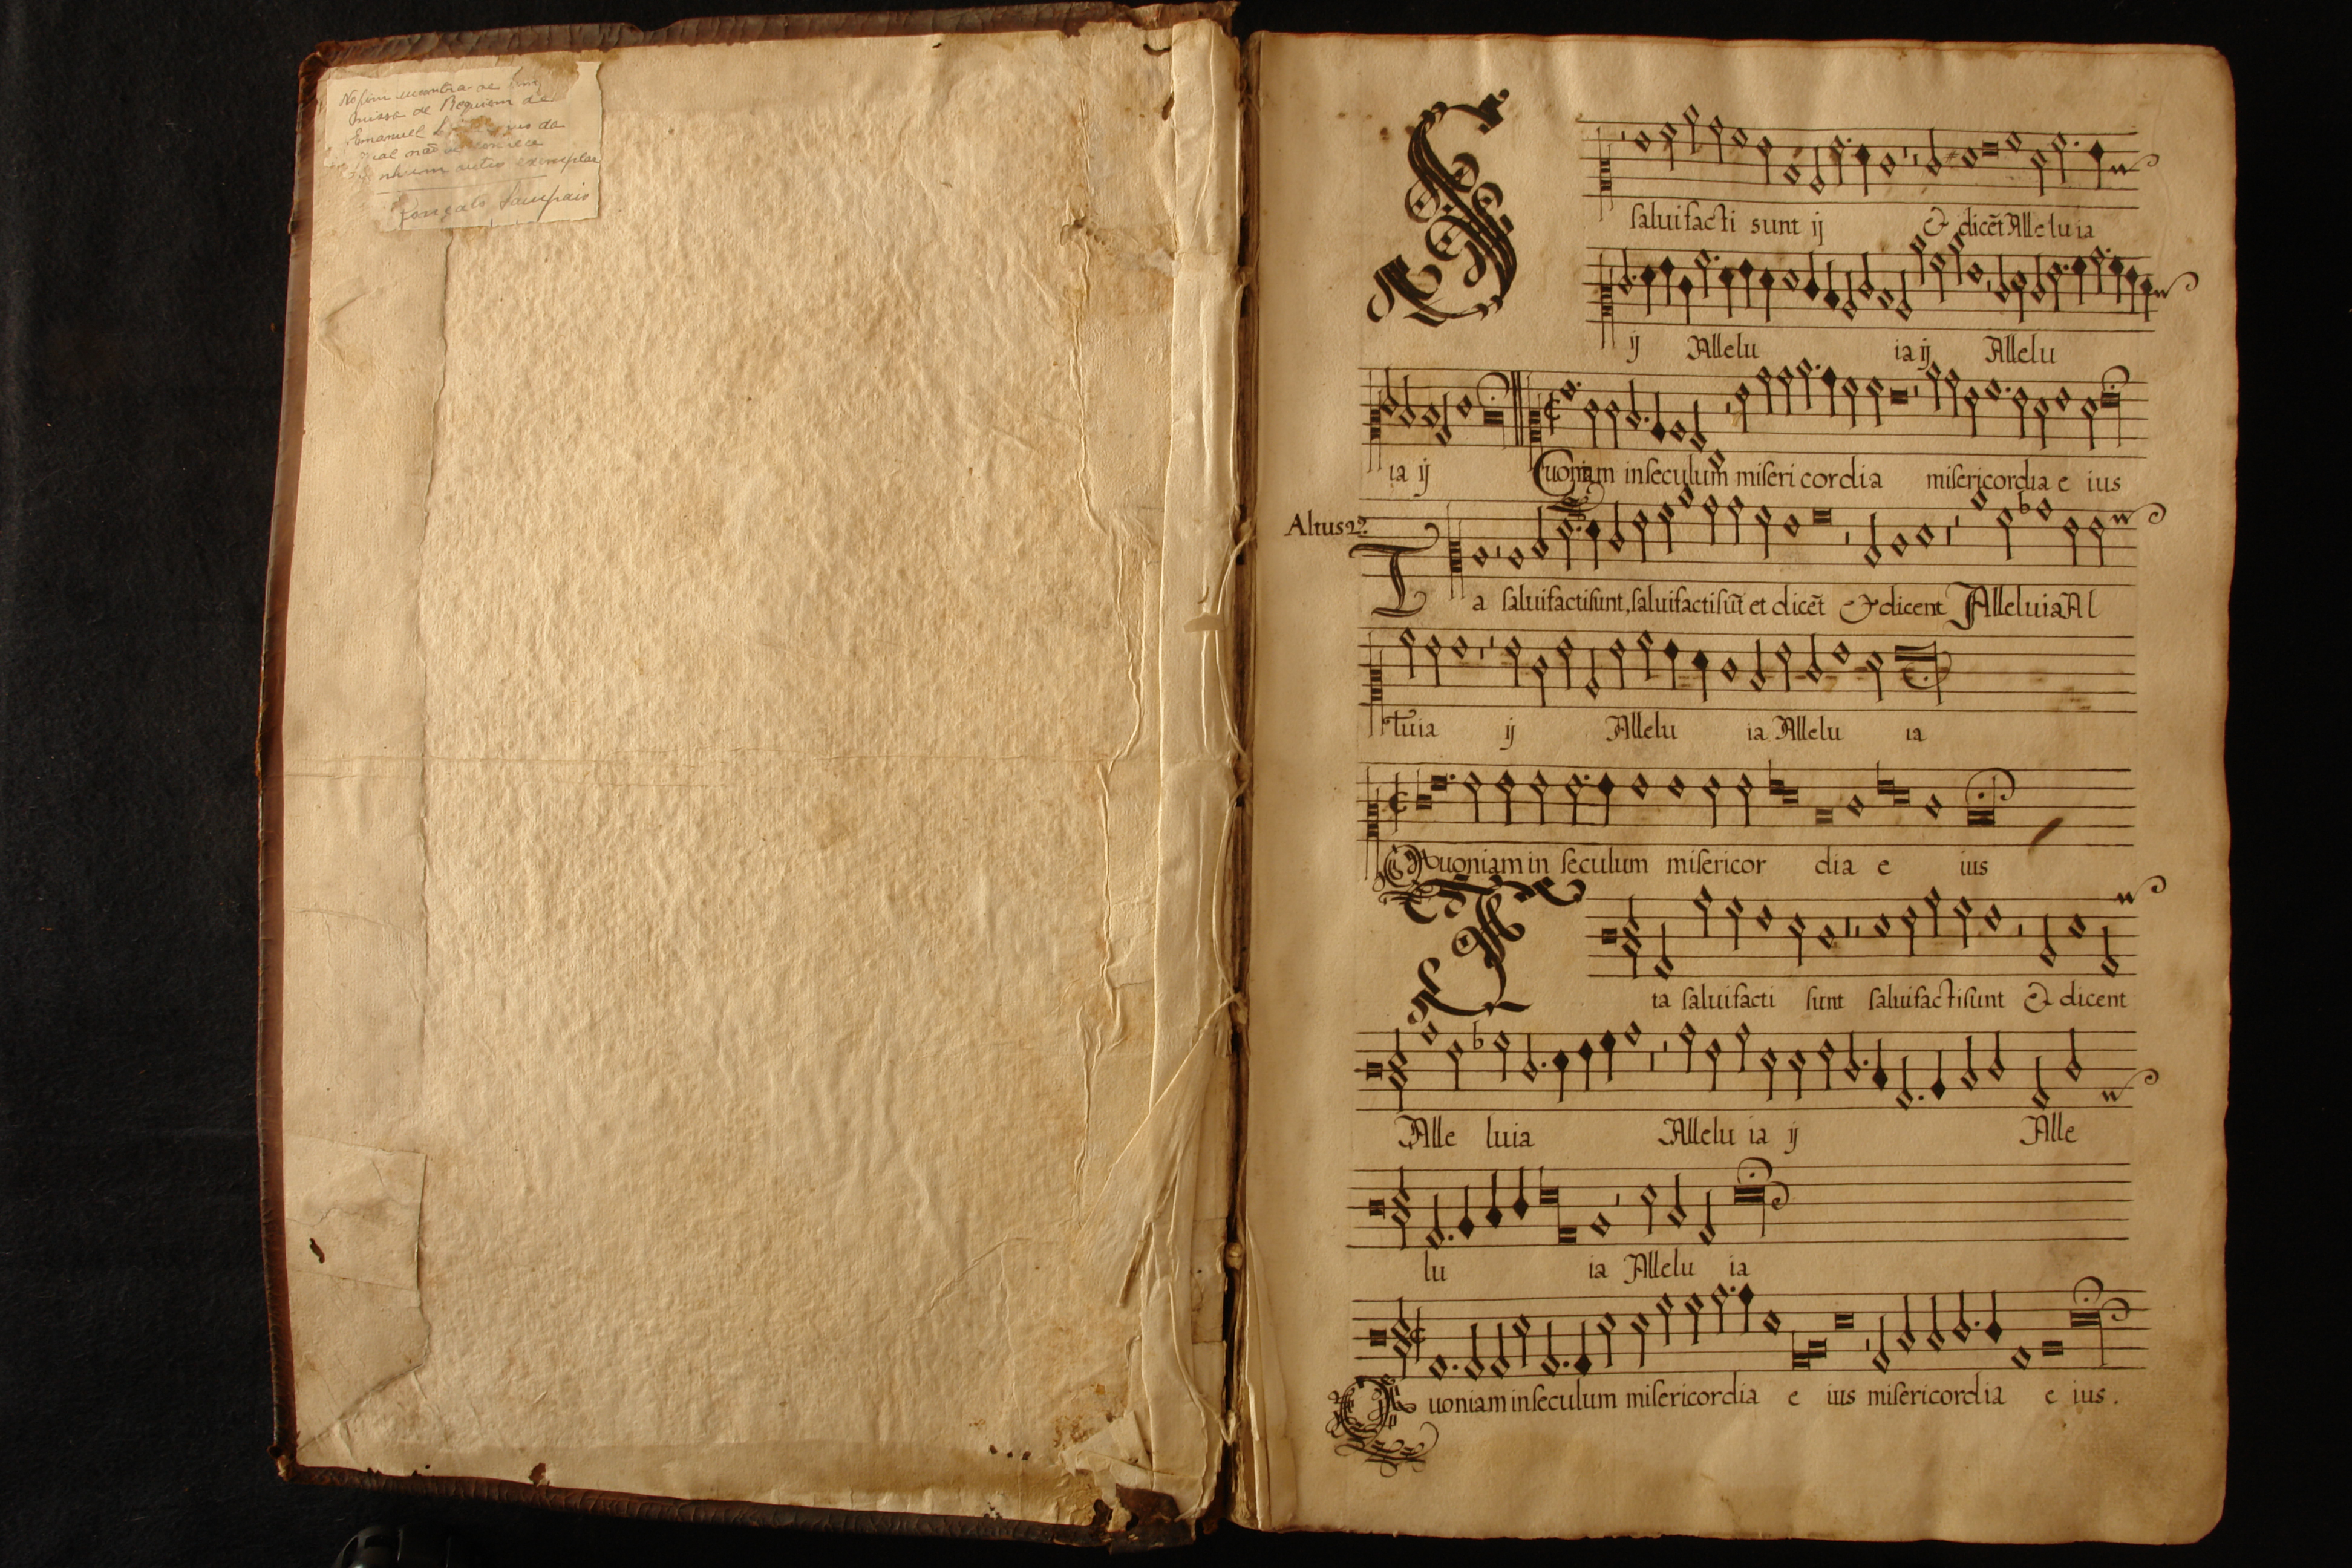 No fim encontra-se uma
missa de Requiem de
Emanuel
qual não se conhece
nenhum outro exemplar
Gonçalo Sampaio
S
salui facti sunt ij & dicẽt Alleluia
ij Allelu ia ij Allelu
ia ij Quoniam in seculum misericordia misericordia e ius
Altus 2º.
T a salui facti sunt, salui facti sũt et dicẽt & dicent Alleluia Al
luia ij Allelu ia Allelu ia
Quoniam in seculum misericor dia e ius
ia salui facti sunt salui facti sunt & dicent
Alle luia Allelu ia ij Alle
lu ia Allelu ia
Quoniam in seculum misericordia e ius misericordia e ius.